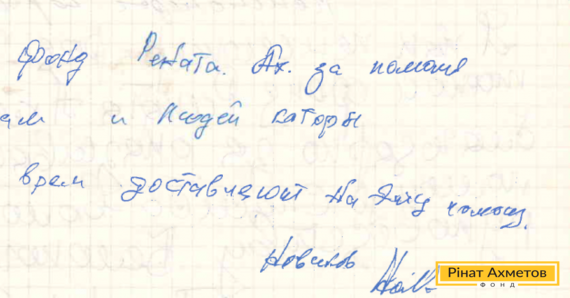 фонд Рената. Ах. за помощь
ам и Людей каторы
врем доставляют на эту помощ.
Новиков
Рінат Ахметов
ФОНД